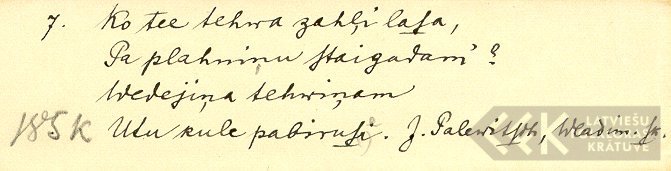 7. Ko tee tehwa zahļi laſa,
Pa plahninu ſtaigadami?
Wedejiņa tehwiņam
185K Utu kule pabiruſi. J. Palewitſch, Wladim. ſk.
LATVIEŠU
KRĀTUVE